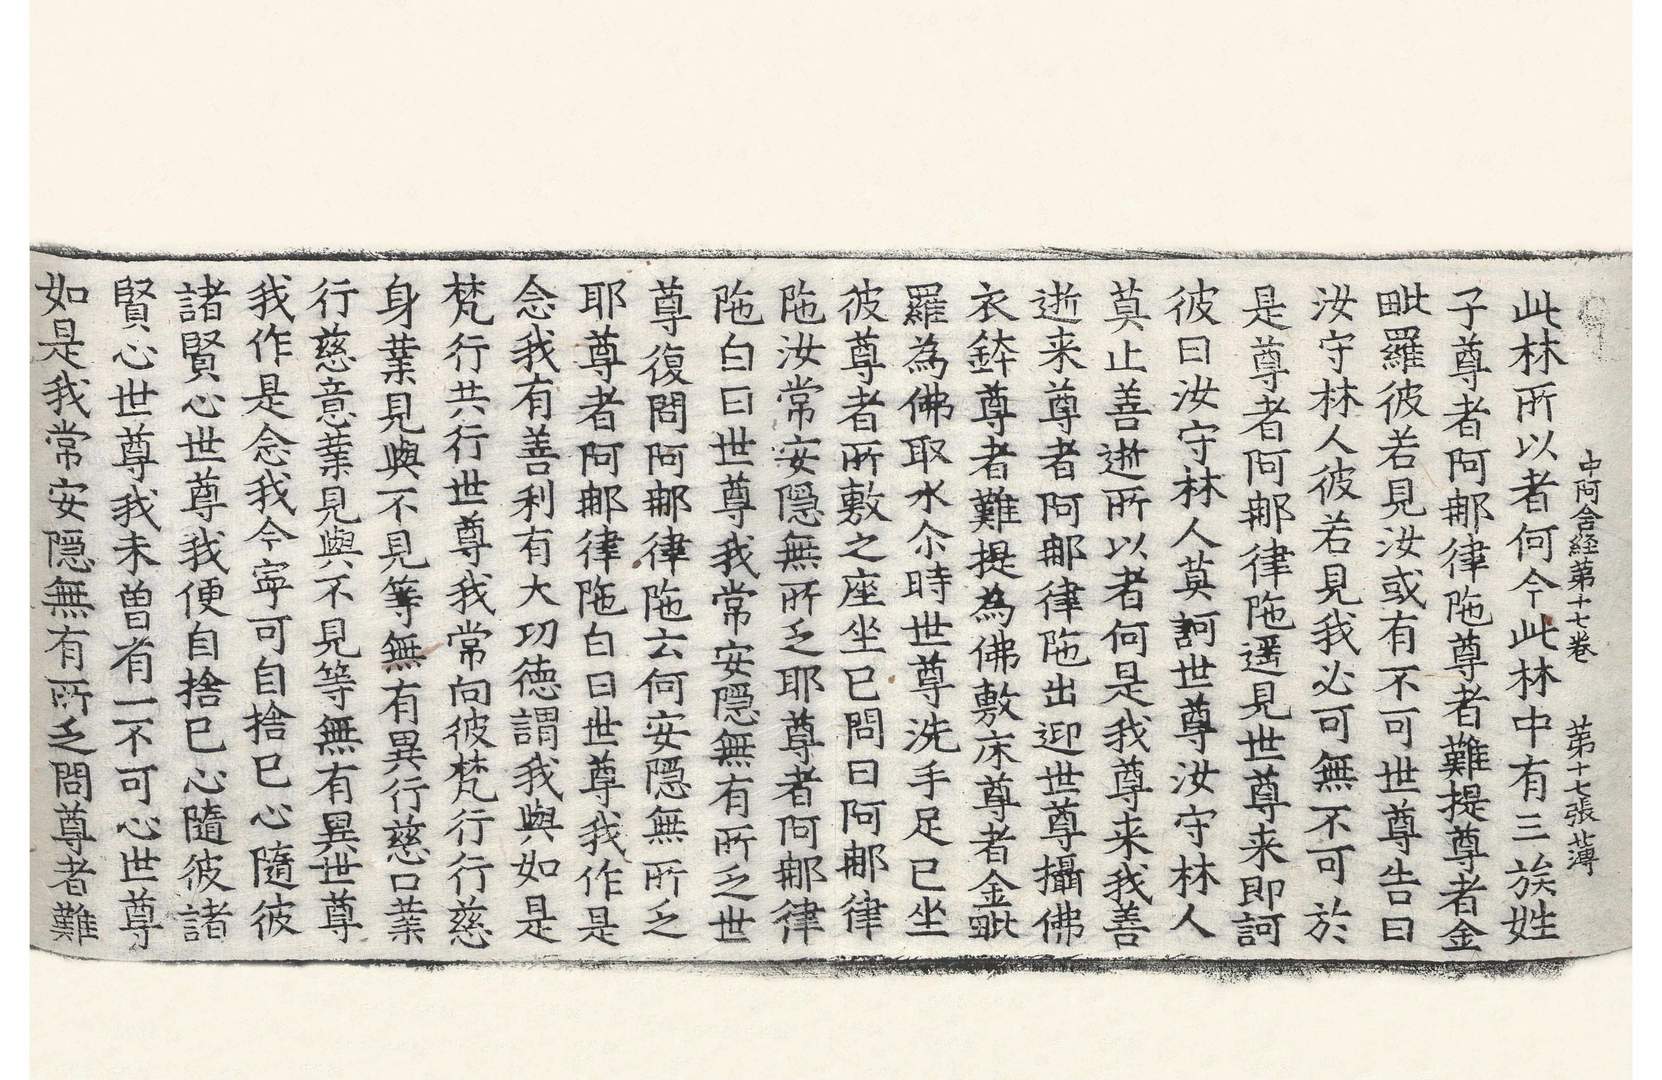 中阿含経第十七卷　第十七張　薄
此林所以者何今此林中有三族姓
子尊者阿那律陁尊者難提尊者金
毗羅彼若見汝或有不可世尊告曰
汝守林人彼若見我必可無不可於
是尊者阿那律陁遥見世尊来即訶
彼曰汝守林人莫訶世尊汝守林人
莫止善逝所以者何是我尊来我善
逝来尊者阿那律陁出迎世尊攝佛
衣鉢尊者難提為佛敷床尊者金毗
羅為佛取水尒時世尊洗手足已坐
彼尊者所敷之座坐已問曰阿那律
陁汝常安隱無所乏耶尊者阿那律
陁白曰世尊我常安隱無有所乏世
尊復問阿那律陁云何安隱無所乏
耶尊者阿那律陁白曰世尊我作是
念我有善利有大功徳謂我與如是
梵行共行世尊我常向彼梵行行慈
身業見與不見等無有異行慈口業
行慈意業見與不見等無有異世尊
我作是念我今寧可自捨已心隨彼
諸賢心世尊我便自捨已心隨彼諸
賢心世尊我未曾有一不可心世尊
如是我常安隱無有所乏問尊者難